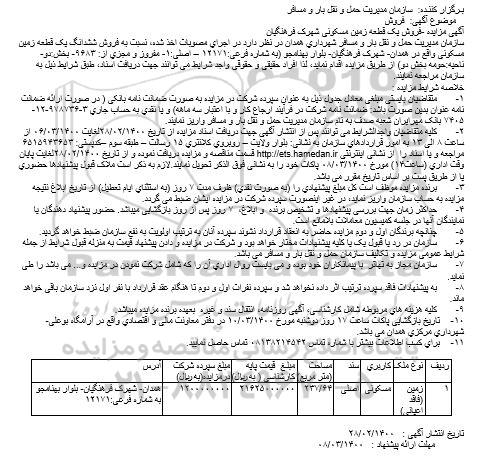 برگزار کننده: سازمان مدیریت حمل و نقل بار و مسافر
موضوع آگهی: فروش
آگهی مزایده -فروش یک قطعه زمین مسکونی شهرک فرهنگیان
سازمان مدیریت حمل و نقل بار و مسافر شهرداری همدان در نظر دارد در اجرای مصوبات اخذ شده، نسبت به فروش ششدانگ یک قطعه زمین
مسکونی واقع در همدان- شهرک فرهنگیان- بلوار بهنامجو به شماره ی (فرعی:۱۲۱۷۱ – اصلی:۱- مفروز و مجزی از: ۹۶۸۳- بخش:دو-
ناحیه:حومه بخش دو) از طریق مزایده اقدام نماید، لذا افراد حقیقی و حقوقی واجد شرایط می توانند جهت دریافت اسناد، طبق شرایط ذیل به
سازمان مراجعه نمایند.
خلاصه شرایط مزایده :
۱- متقاضیان بایستی مبلغی معادل جدول ذیل به عنوان سپرده شرکت در مزایده به صورت ضمانت نامه بانکی ( در صورت ارائه ضمانت
نامه عنوان بدین صورت باشد: ضمانت نامه شرکت در فرآیند ارجاع کار و با اعتبار سه ماهه) و یا نقدی به حساب جاری ۳-۹۷۸۷۳۶-۱۲-
۷۴۰۵ بانک مهرایران شعبه صدف به نام سازمان مدیریت حمل و نقل بار و مسافر واریز نمایند.
۲- کلیه متقاضیان واجدالشرایط می توانند پس از انتشار آگهی جهت دریافت اسناد مزایده از تاریخ ۲۸/۰۲/۱۴۰۰ لغایت ۰۶/۰۳/۱۴۰۰ از
ساعت ۸ الی ۱۳ به امور قراردادهای سازمان به نشانی: بلوار ولایت – روبروی کلانتری ۱۵ رسالت – طبقه سوم –کدپستی: ۶۵۱۵۹۴۳۶۵۳
مراجعه و یا اسناد را از نشانی اینترنتی http://ets.hamedan.ir قسمت مناقصه و مزایده دریافت نموده و از تاریخ ۲۸/۰۲/۱۴۰۰ لغایت پایان
وقت اداری (ساعت۱۴) مورخ ۰۸/۰۳/۱۴۰۰ پاکات خود را به نشانی فوق الذکر تحویل نمایند. لازم به ذکر است ملاک قبول پیشنهادها حضوری
یا از طریق پست بر اساس تاریخ مقرر می باشد.
۳- برنده مزایده موظف است کل مبلغ پیشنهادی را (به صورت نقدی) ظرف مدت ۷ روز (به استثنای ایام تعطیل) از تاریخ ابلاغ نتیجه
مزایده به حساب سازمان واریز نماید، در غیر اینصورت سپرده شرکت در مزایده ایشان ضبط می گردد.
۴- حداکثر زمان جهت بررسی پیشنهادها و تشخیص برنده و ابلاغ، ۷ روز پس از روز بازگشایی میباشد. حضور پیشنهاد دهندگان یا
نمایندگان آنها در جلسه کمیسیون معاملات بلامانع است.
۵- چنانچه برندگان اول و دوم مزایده حاضر به انعقاد قرارداد نشوند سپرده آنان به ترتیب اولویت به نفع سازمان ضبط خواهد گردید.
۶- سازمان در رد یا قبول یک یا کلیه پیشنهادات مختار خواهد بود و شرکت در مزایده و دادن پیشنهاد قیمت به منزله قبول شرایط از جمله
شرایط عمومی مزایده و تکالیف سازمان حمل و نقل بار و مسافر می باشد.
۷- سازمان مجاز به تهاتر با پیمانکاران خود بوده و می بایست روال اداری آن را که شامل شرکت نمودن در مزایده و... می باشد را طی
نماید.
۸- به پیشنهادات فاقد سپرده ترتیب اثر داده نخواهد شد و سپرده نفرات اول و دوم تا هنگام عقد قرارداد با نفر اول نزد سازمان باقی خواهد
ماند.
۹- کلیه هزینه های مربوطه شامل کارشناسی، آگهی روزنامه، انتقال سند و غیره بعهده برنده مزایده میباشد.
۱۰- تاریخ بازگشایی پاکات ساعت ۱۷ روز دوشنبه مورخ ۱۰/۰۳/۱۴۰۰ در دفتر معاونت مالی و اقتصادی واقع در آرامگاه بوعلی-
شهرداری مرکزی همدان می باشد.
۱۱- برای کسب اطلاعات بیشتر با شماره تماس ۰۸۱۳۸۲۱۴۵۴۲ تماس حاصل نمایید.
ردیف نوع ملک کاربری سند مساحت (متر مربع) مبلغ قیمت پایه کارشناسی ( به ریال) مبلغ سپرده شرکت درمزایده(به ریال) آدرس
۱ زمین (فاقد اعیانی) مسکونی اصلی ۲۳۷/۶۴ ۲۱۶۲۵۰۰۰۰۰۰ ۱۲۰۰۰۰۰۰۰۰ همدان- شهرک فرهنگیان- بلوار بهنامجو به شماره فرعی:۱۲۱۷۱
تاریخ انتشار آگهی : ۲۸/۰۲/۱۴۰۰
مهلت ارائه پیشنهاد : ۰۸/۰۳/۱۴۰۰